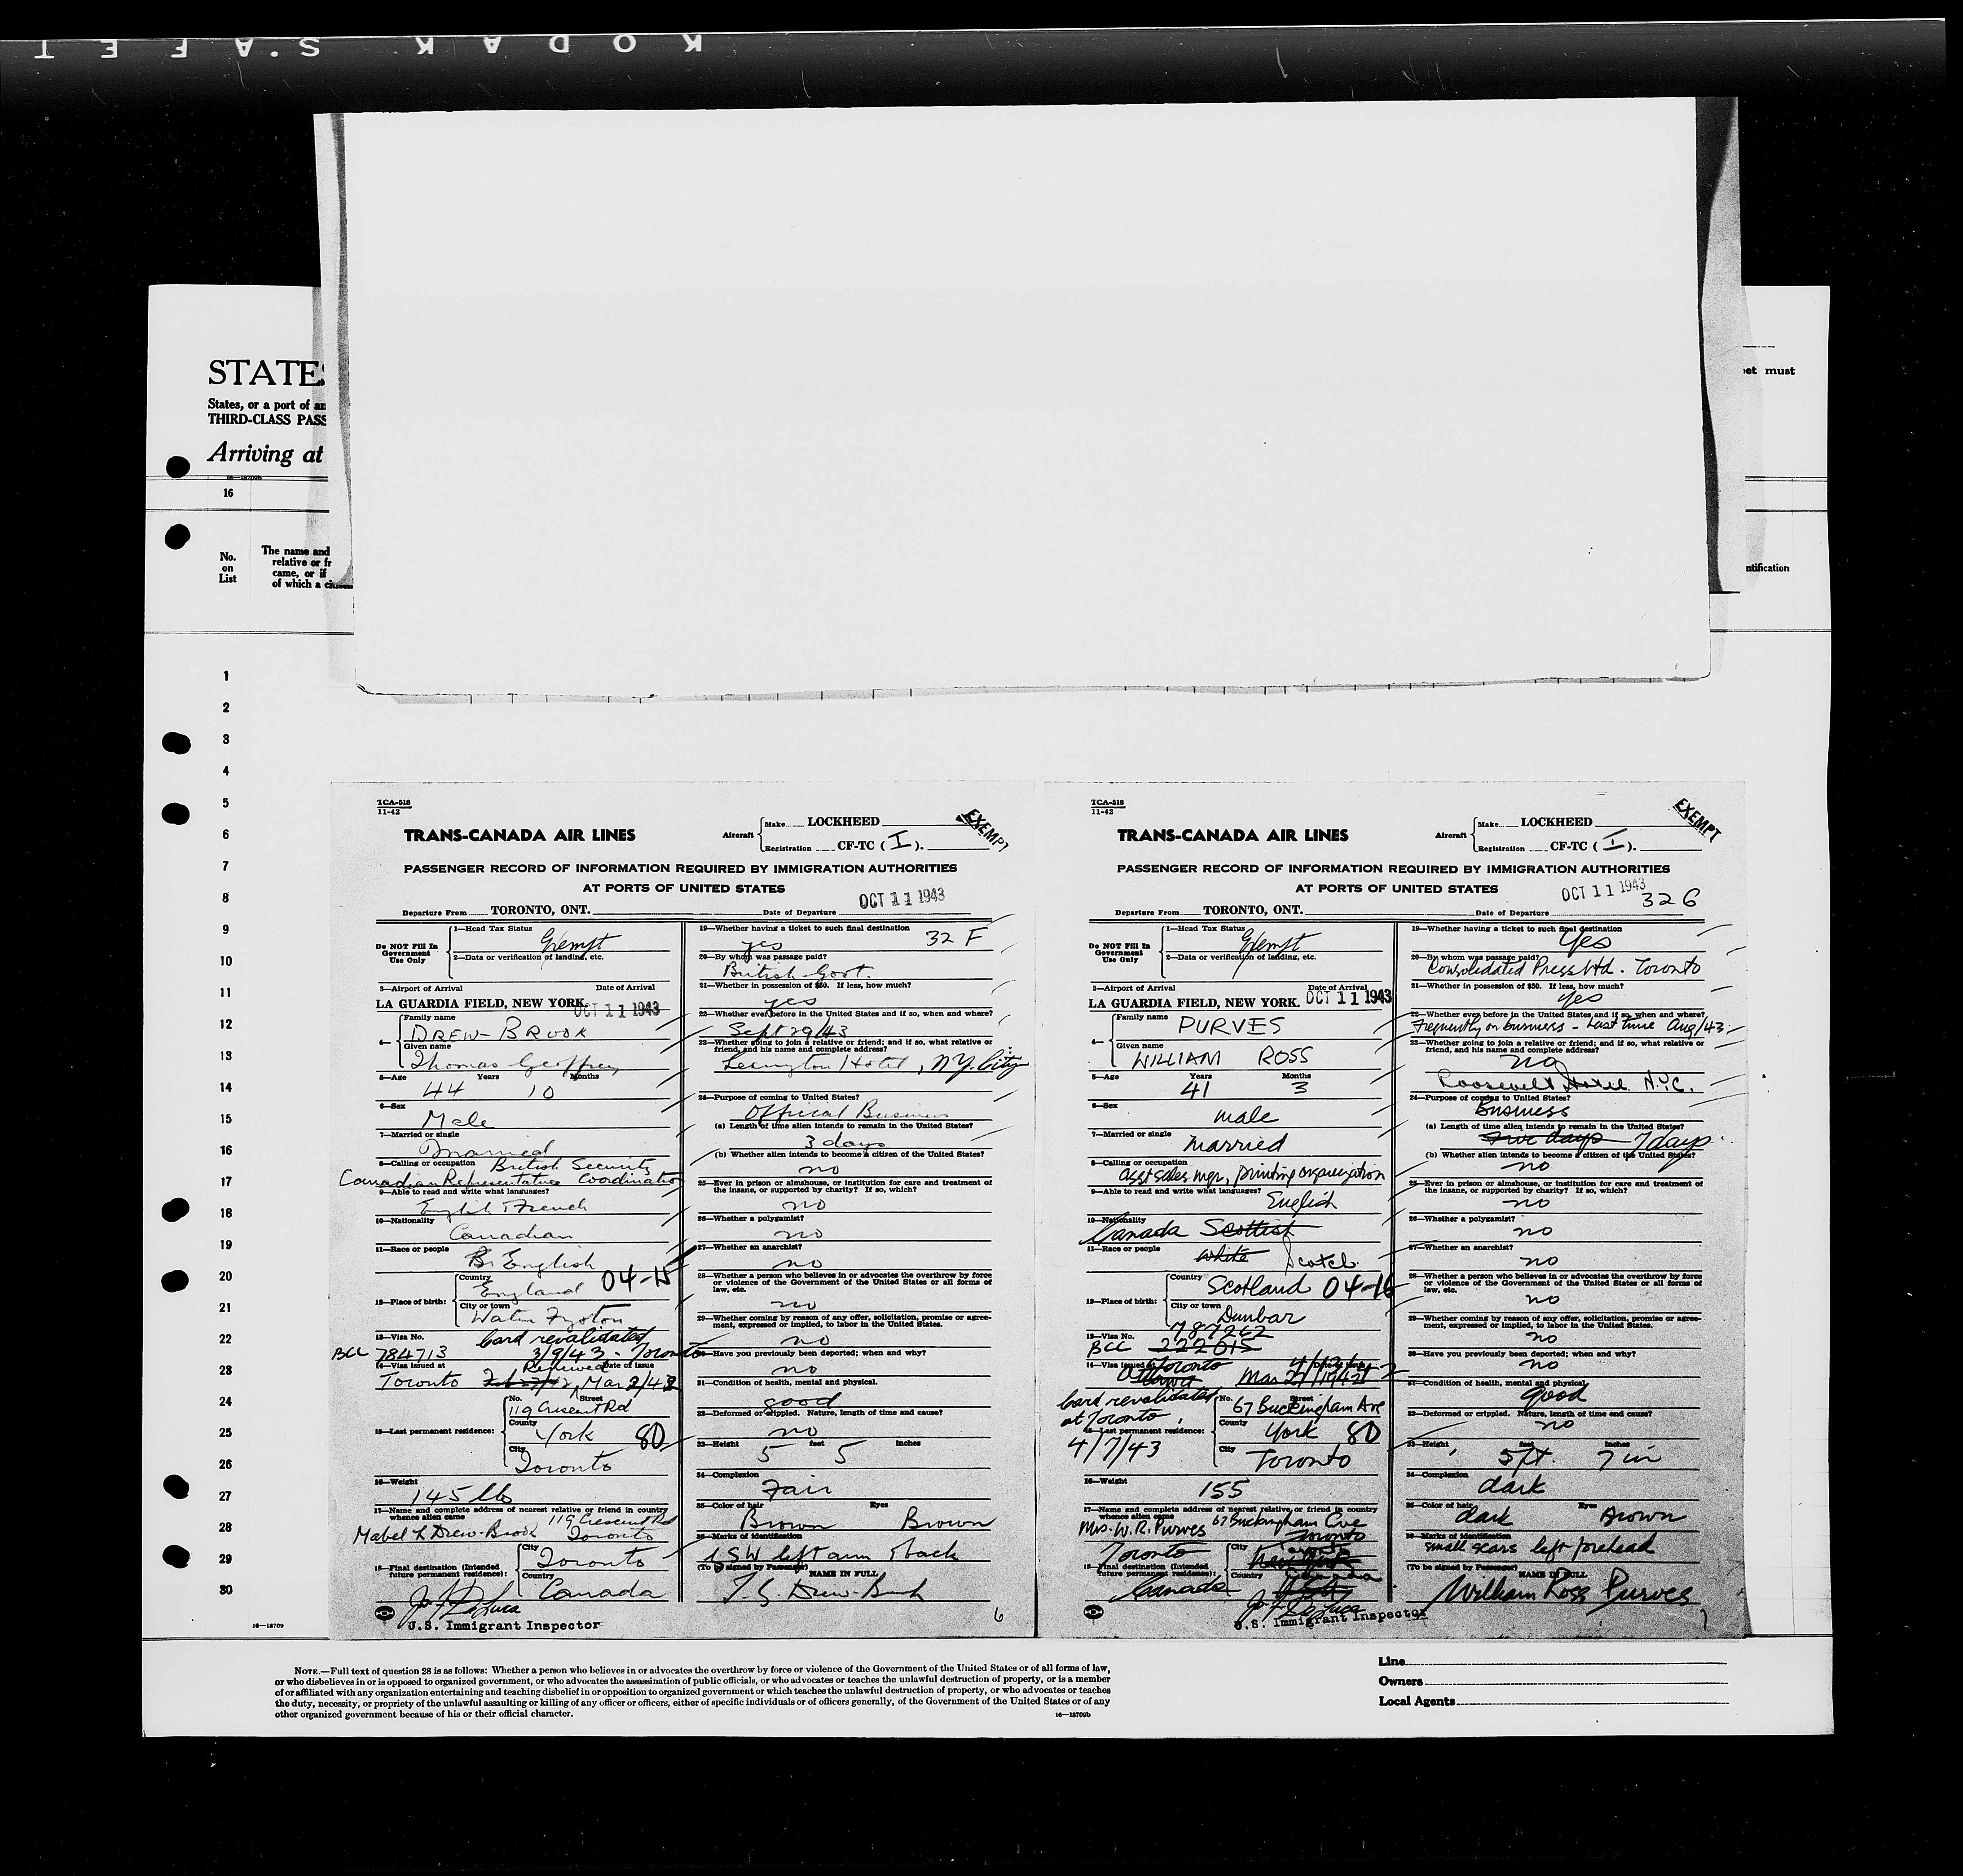 KODAK S.A F E T
STATES
States, or a port of an
THIRD-CLASS PASS
Arriving at
16
No.
on
List
The name and
relative or fr
came, or if
of which a
et must
ntification
1
2
3
4
5
6
7
8
9
10
11
12
13
14
15
16
17
18
19
20
21
22
23
24
25
26
27
28
29
30
16—18709
TCA-518
11-42
TRANS-CANADA AIR LINES
Aircraft
Make LOCKHEED
Registration CF-TC ( I ).
EXEMPT
PASSENGER RECORD OF INFORMATION REQUIRED BY IMMIGRATION AUTHORITIES
AT PORTS OF UNITED STATES
OCT 11 1943
Departure From TORONTO, ONT. Date of Departure
Do NOT Fill In
Government
Use Only
1—Head Tax Status
Exempt
2—Data or verification of landing, etc.
3—Airport of Arrival Date of Arrival
LA GUARDIA FIELD, NEW YORK. OCT 11 1943
4—
Family name
DREW-BROOK
Given name
Thomas Geoffrey
5—Age Years Months
44 10
6—Sex
Male
7—Married or single
Married
8—Calling or occupation British Security
Canadian Representative Coordination
9—Able to read and write what languages?
English French
10—Nationality
Canadian
11—Race or people
Br English
12—Place of birth:
Country
England 04-15
City or town
13—Visa No. Card revalidated
BCC 784713 3/9/43 - Toronto
14—Visa issued at Renewed Date of issue
Toronto Mar 2/42
15—Last permanent residence:
No. Street
119 Crescent Rd
County
York 80
City
Toronto
16—Weight
145 lbs
17—Name and complete address of nearest relative or friend in country
whence alien came 119 Crescent Rd
Mabel L Drew-Brook Toronto
18—Final destination (Intended
future permanent residence):
City
Toronto
Country
Canada
J. F. DeLuca
U.S. Immigrant Inspector
19—Whether having a ticket to such final destination
yes 32 F
20—By whom was passage paid?
British Govt.
21—Whether in possession of $50. If less, how much?
yes
22—Whether ever before in the United States and if so, when and where?
Sept 29/43
23—Whether going to join a relative or friend; and if so, what relative or
friend, and his name and complete address?
Lexington Hotel, N.Y. City
24—Purpose of coming to United States?
Official Business
(a) Length of time alien intends to remain in the United States?
3 days
(b) Whether alien intends to become a citizen of the United States?
no
25—Ever in prison or almshouse, or institution for care and treatment of
the insane, or supported by charity? If so, which?
no
26—Whether a polygamist?
no
27—Whether an anarchist?
no
28—Whether a person who believes in or advocates the overthrow by force
or violence of the Government of the United States or all forms of
law, etc.
no
29—Whether coming by reason of any offer, solicitation, promise or agree-
ment, expressed or implied, to labor in the United States.
no
30—Have you previously been deported; when and why?
no
31—Condition of health, mental and physical.
good
32—Deformed or crippled. Nature, length of time and cause?
no
33—Height feet inches
5 5
34—Complexion
Fair
35—Color of hair Eyes
Brown Brown
36—Marks of identification
GSW left arm & back
(To be signed by Passenger) NAME IN FULL
T. G. Drew-Brook
6
TCA-518
11-42
TRANS-CANADA AIR LINES
Aircraft
Make LOCKHEED
Registration CF-TC ( I ).
EXEMPT
PASSENGER RECORD OF INFORMATION REQUIRED BY IMMIGRATION AUTHORITIES
AT PORTS OF UNITED STATES
OCT 11 1943
326
Departure From TORONTO, ONT. Date of Departure
Do NOT Fill In
Government
Use Only
1—Head Tax Status
Exempt
2—Data or verification of landing, etc.
3—Airport of Arrival Date of Arrival
LA GUARDIA FIELD, NEW YORK. OCT 11 1943
4—
Family name
PURVES
Given name
WILLIAM ROSS
5—Age Years Months
41 3
6—Sex
male
7—Married or single
Married
8—Calling or occupation
Asst sales mgr, printing organization
9—Able to read and write what languages?
English
10—Nationality
Canada Scottish
11—Race or people
White Scotch
12—Place of birth:
Country
Scotland 04-16
City or town
Dunbar
13—Visa No. 787262
BCC 222015
14—Visa issued at Toronto Date of issue
Ottawa
Card revalidated
at Toronto,
4/7/43
15—Last permanent residence:
No. Street
67 Buckingham Ave
County
York 80
City
Toronto
16—Weight
155
17—Name and complete address of nearest relative, or friend in country
whence alien came
Mrs. W. R. Purves 67 Buckingham Ave
Toronto
18—Final destination (Intended
future permanent residence):
Toronto
Canada
City
New York
Country
J. F. DeLuca
U.S. Immigrant Inspector
19—Whether having a ticket to such final destination
Yes
20—By whom was passage paid?
Consolidated Press Ltd. - Toronto
21—Whether in possession of $50. If less, how much?
yes
22—Whether ever before in the United States and if so, when and where?
Frequently on business - Last time Aug/43
23—Whether going to join a relative or friend; and if so, what relative or
friend, and his name and complete address?
no
Roosevelt Hotel N.Y.C.
24—Purpose of coming to United States?
Business
(a) Length of time alien intends to remain in the United States?
Five days 7 days
(b) Whether alien intends to become a citizen of the United States?
no
25—Ever in prison or almshouse, or institution for care and treatment of
the insane, or supported by charity? If so, which?
no
26—Whether a polygamist?
no
27—Whether an anarchist?
no
28—Whether a person who believes in or advocates the overthrow by force
or violence of the Government of the United States or all forms of
law, etc.
no
29—Whether coming by reason of any offer, solicitation, promise or agree-
ment, expressed or implied, to labor in the United States.
no
30—Have you previously been deported; when and why?
no
31—Condition of health, mental and physical.
good
32—Deformed or crippled. Nature, length of time and cause?
no
33—Height feet inches
5 ft. 7 in
34—Complexion
dark
35—Color of hair Eyes
dark Brown
36—Marks of identification
small scars left forehead
(To be signed by Passenger) NAME IN FULL
William Ross Purves
7
NOTE.—Full text of question 28 is as follows: Whether a person who believes in or advocates the overthrow by force or violence of the Government of the United States or of all forms of law,
or who disbelieves in or is opposed to organized government, or who advocates the assassination of public officials, or who advocates or teaches the unlawful destruction of property, or is a member
of or affiliated with any organization entertaining and teaching disbelief in or opposition to organized government or which teaches the unlawful destruction of property, or who advocates or teaches
the duty, necessity, or propriety of the unlawful assaulting or killing of any officer or officers, either of specific individuals or of officers generally, of the Government of the United States or of any
other organized government because of his or their official character.
16—18709b
Line
Owners
Local Agents